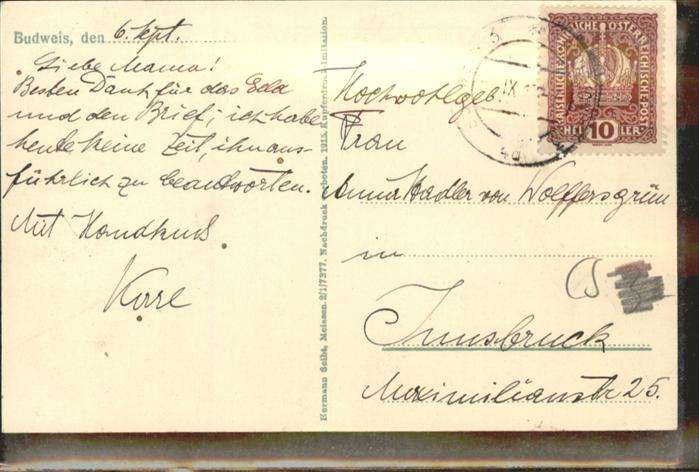 Budweis, den 6. Sept.
Liebe Mama!
Besten Dank für das Geld
und den Brief; ich habe
heute keine Zeit, ihn aus-
führlich zu beantworten.
Mit Handkuss
Hermann Seibt, Meissen. 2/1/7377. Nachdruck verboten. 1913. Kupferdruck-Imitation.
KAISERLICHE KÖNIGLICHE ÖSTERREICHISCHE POST
HELLER
10
IX
Hochwohlgeb.
Frau
Anna Hadler von Wolffersgrün
in
Innsbruck
Maximilianstr 25.
CS